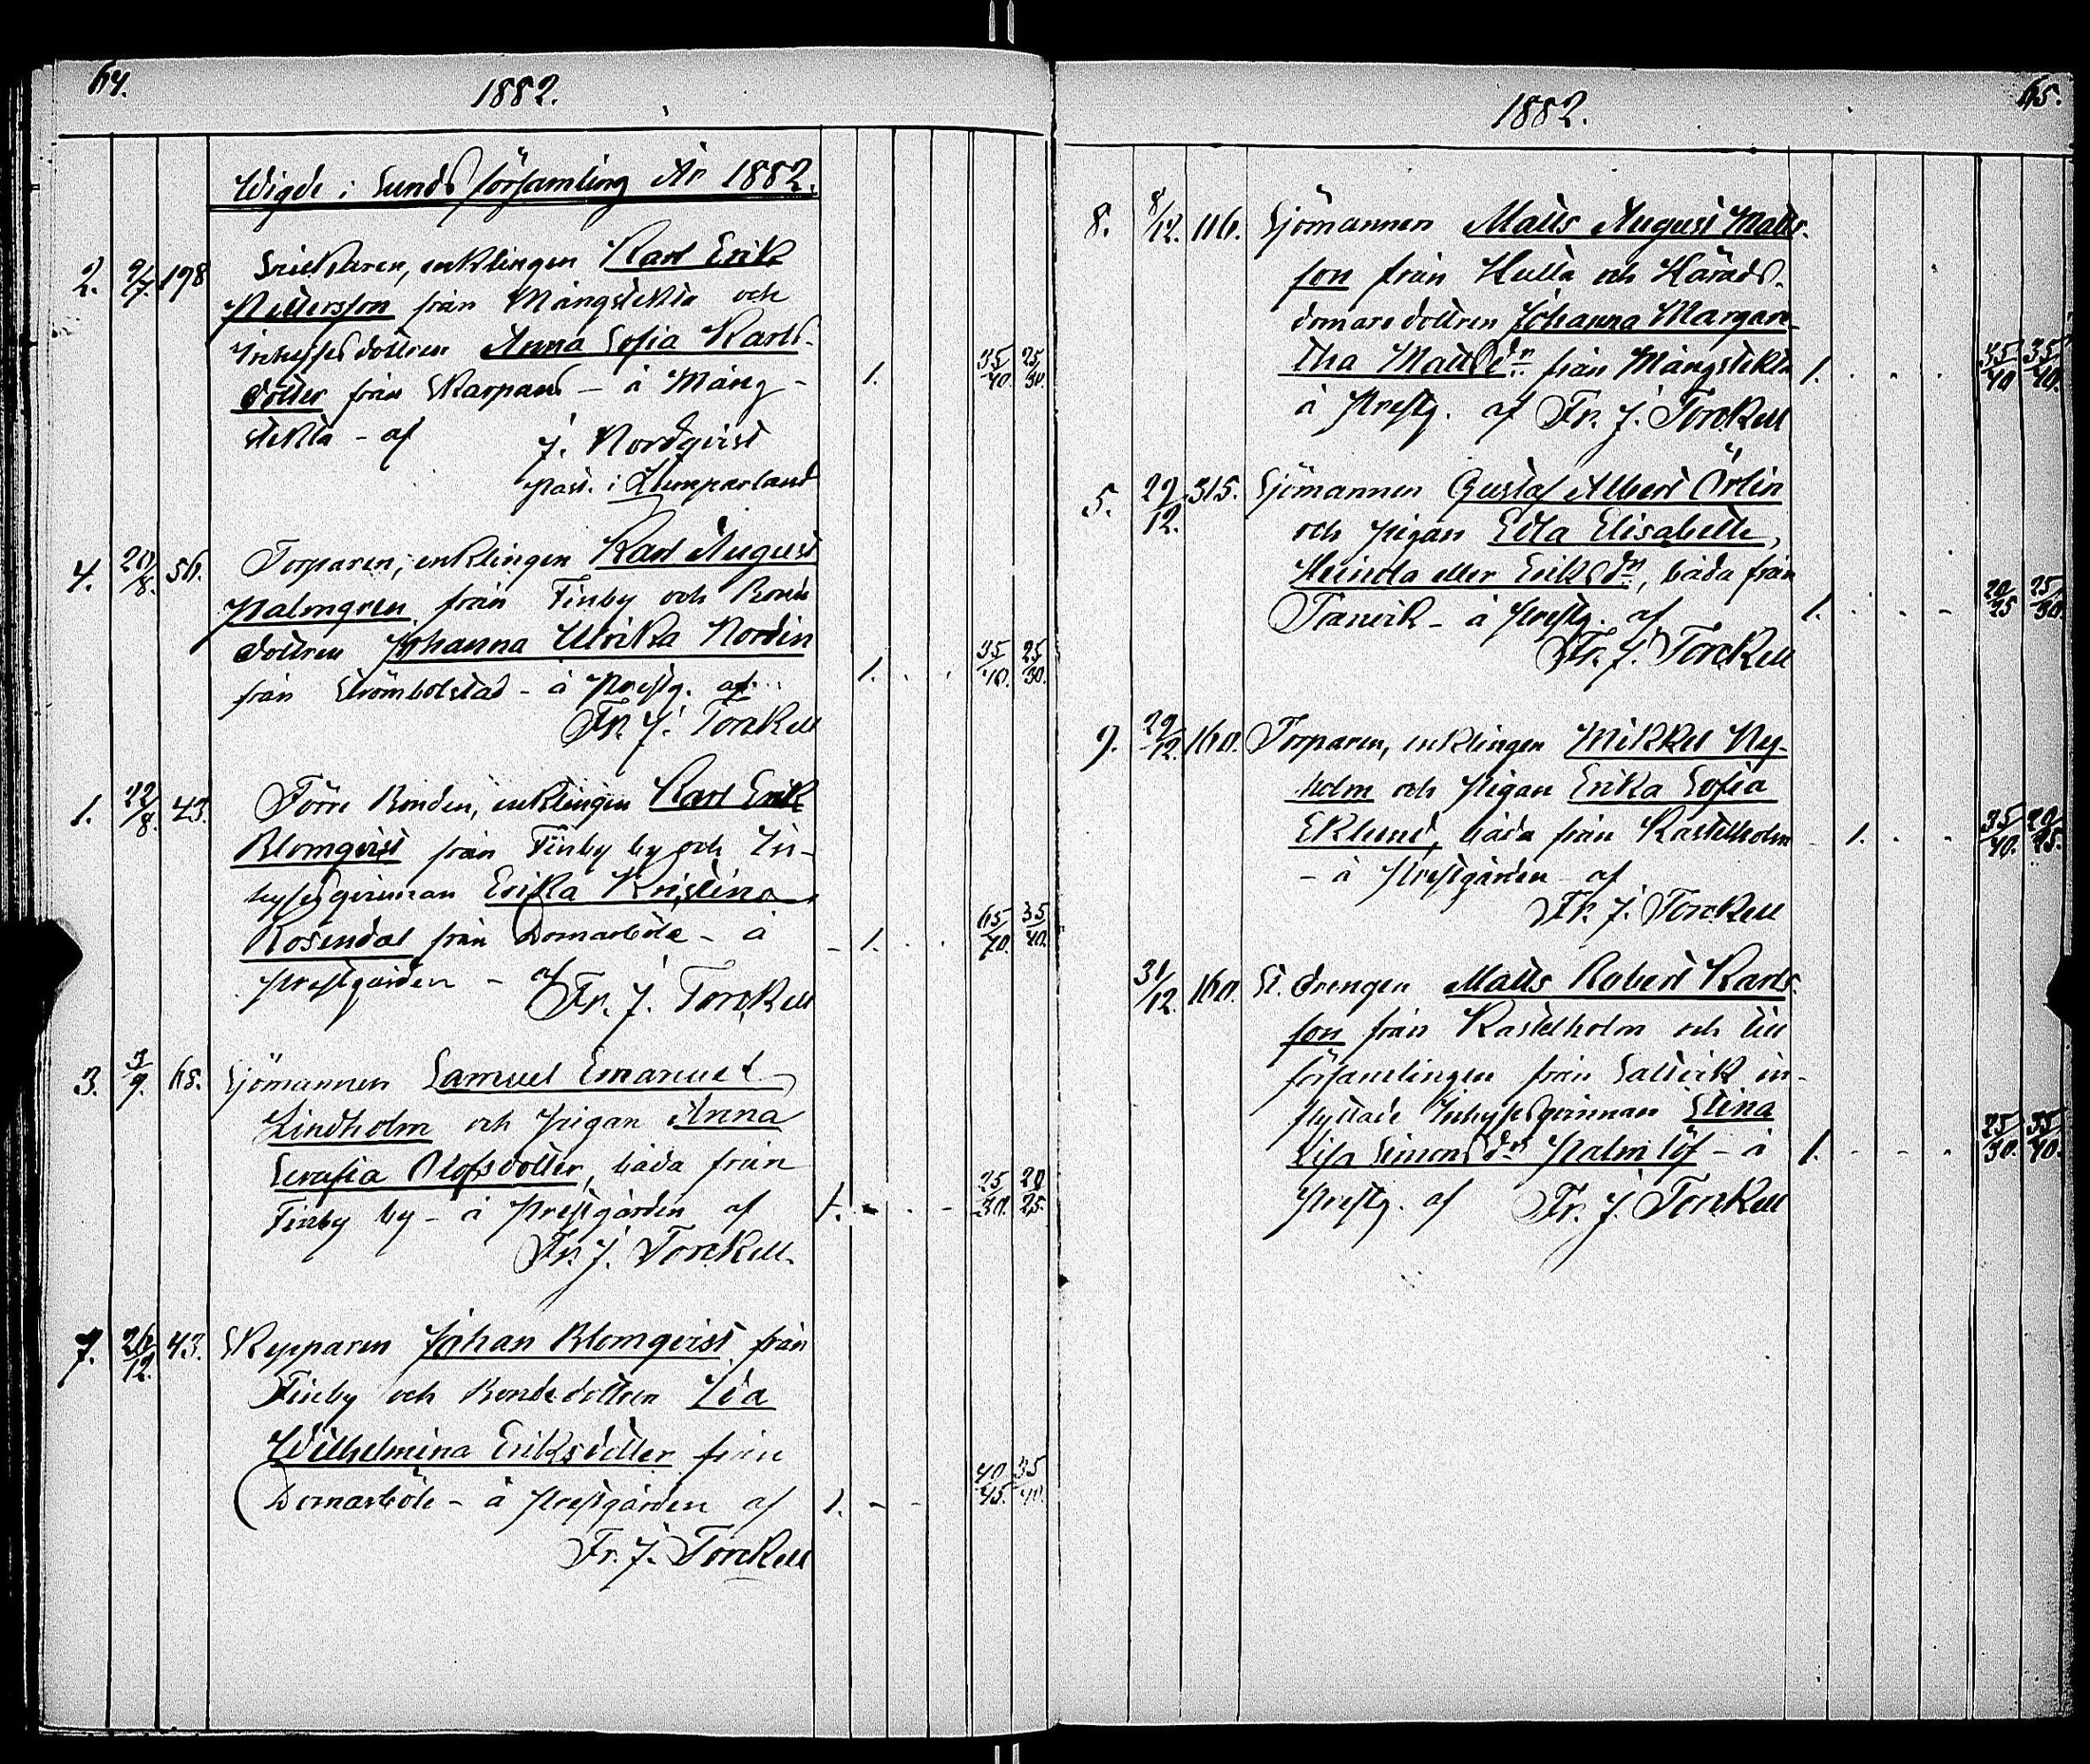 64.
1882.
Wigde i Sunds församling År 1882.
2. 9/7. 198 Snickaren, enklingen Karl Erik
Pettersson från Mångstekta och
Inhysesdottren Anna Sofia Karls-
dotter från Skarpans - å Mång- 1. 35/40. 25/30.
stekta - af J. Nordqvist
past. i Lumparland
4. 20/8. 56. Torparen, enklingen Karl August
Palmgren från Finby och Bonde
dottren Johanna Ulrika Nordin
från Strömbolstad - å Prestg. af 1. 35/40. 25/30.
Fr. J. Torckell
1. 22/8. 43. Förre Bonden, enklingen Karl Erik
Blomqvist från Finby by och In-
hysesqvinnan Erika Kristina
Rosendal från Domarböle - å - 1. 65/70. 35/40.
Prestgården - af Fr. J. Torckell
3. 3/9. 65. Sjömannen Samuel Emanuel
Lindholm och Pigan Anna
Serafia Olofsdotter, båda från
Finby by - å Prestgården af 1. 25/30. 20/25.
Fr. J. Torckell.
7. 26/12. 43. Skepparen Johan Blomqvist från
Finby och Bondedottren Ida
Wilhelmina Eriksdotter från
Domarböle - å Prestgården af 1. - - 40/45. 35/40.
Fr. J. Torckell
65.
1882.
8. 8/12. 116. Sjömannen Matts August Matts-
son från Hulta och Härads-
domaredottren Johanna Margare-
tha Mattsdr från Mångstekta 1. 35/40 35/40.
å Prestg. af Fr. J. Torckell
5. 29/12. 315. Sjömannen Gustaf Albert Örlin
och Pigan Edla Elisabeth,
Heinola eller Eriksdr, båda från
Tranvik - å Prestg. af 1. 20/25 25/30.
Fr. J. Torckell
9. 29/12. 160. Torparen, enklingen Mikkel Ny-
holm och Pigan Erika Sofia
Eklund, båda från Kastelholm - 1. 35/40. 20/25.
- å Prestgården af
Fr. J. Torckell
31/12. 160. St. drengen Matts Robert Karls-
son från Kastelholm och till
församlingen från Saltvik in-
flyttade Inhysesqvinnan Stina
Lisa Simonsdr Palmlöf - å 1. - - - 25/30. 35/40.
Prestg. af Fr. J. Torckell